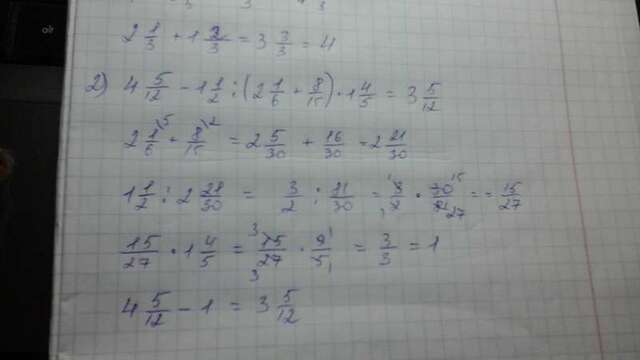 2 1/3 + 1 2/3 = 3 3/3 = 4
2) 4 5/12 - 1 1/2 : (2 1/6 + 8/15) · 1 4/5 = 3 5/12
2 1/6 \5 + 8/15 \2 = 2 5/30 + 16/30 = 2 21/30
1 1/2 : 2 21/30 = 3/2 : 81/30 = 3/2 · 30/81 = = 15/27
15/27 · 1 4/5 = 15/27 · 9/5 = 3/3 = 1
4 5/12 - 1 = 3 5/12